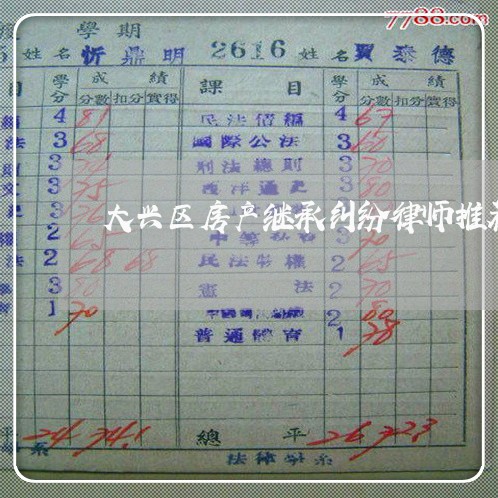 7788.com
度 學期
5 姓名 忻鼎明 2616 姓名 賈泰德
目 學分 成績 課目 學分 成績
分數 扣分 實得 分數 扣分 實得
4 81 民法債編 4 67
法 3 68 國際公法 3 60
則 3 刑法總則 3 70
文 3 75 西洋通史 3 80
史 3 3
大兴区房产继承纠纷律师推荐
權 2 3 70
法 2 68 68 民法物權 2 65
3 80 憲法 2 70
育 1 70 2 80
普通體育 1 78
平 24 74.1 總平 26 72.3
系 法律學系